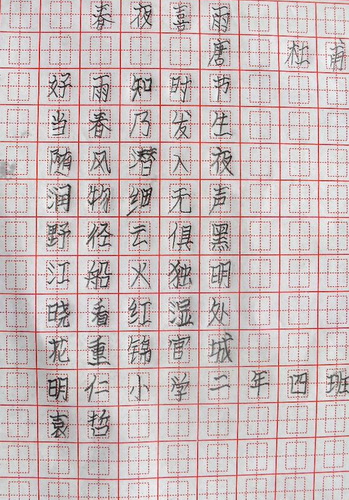 春夜喜雨
唐 杜甫
好雨知时节
当春乃发生
随风潜入夜
润物细无声
野径云俱黑
江船火独明
晓看红湿处
花重锦官城
明仁小学二年四班
袁哲